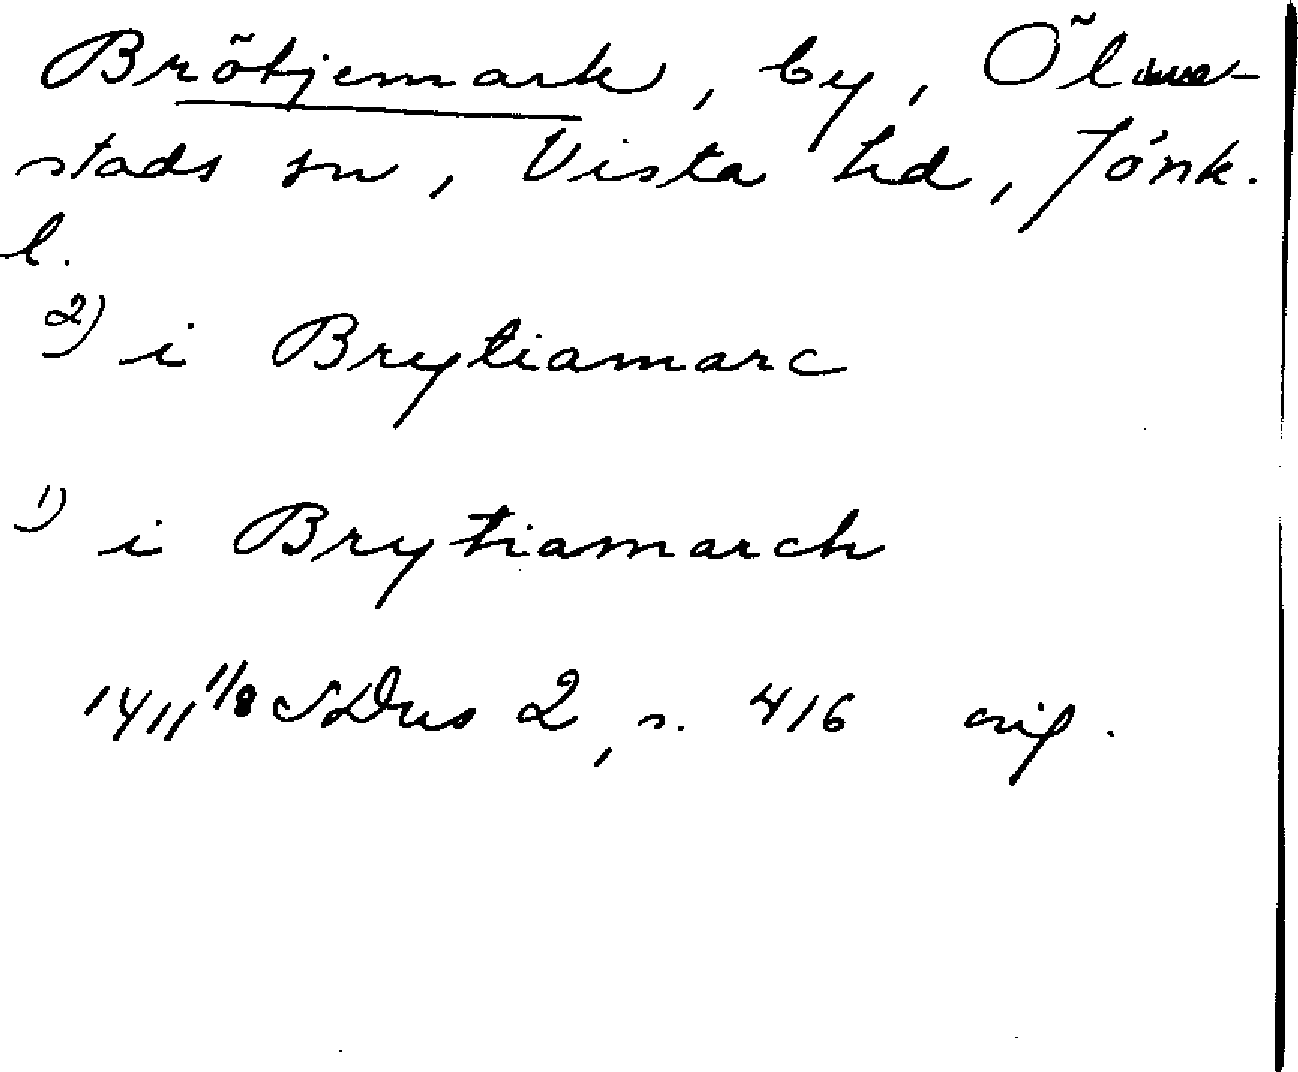 Brötjemark, by, Ölme-
stads sn, Vista hd, Jönk.
l.
2) i Brytiamarc
1) i Brytiamarch
1411 1/8 SDns 2, s. 416 orig.